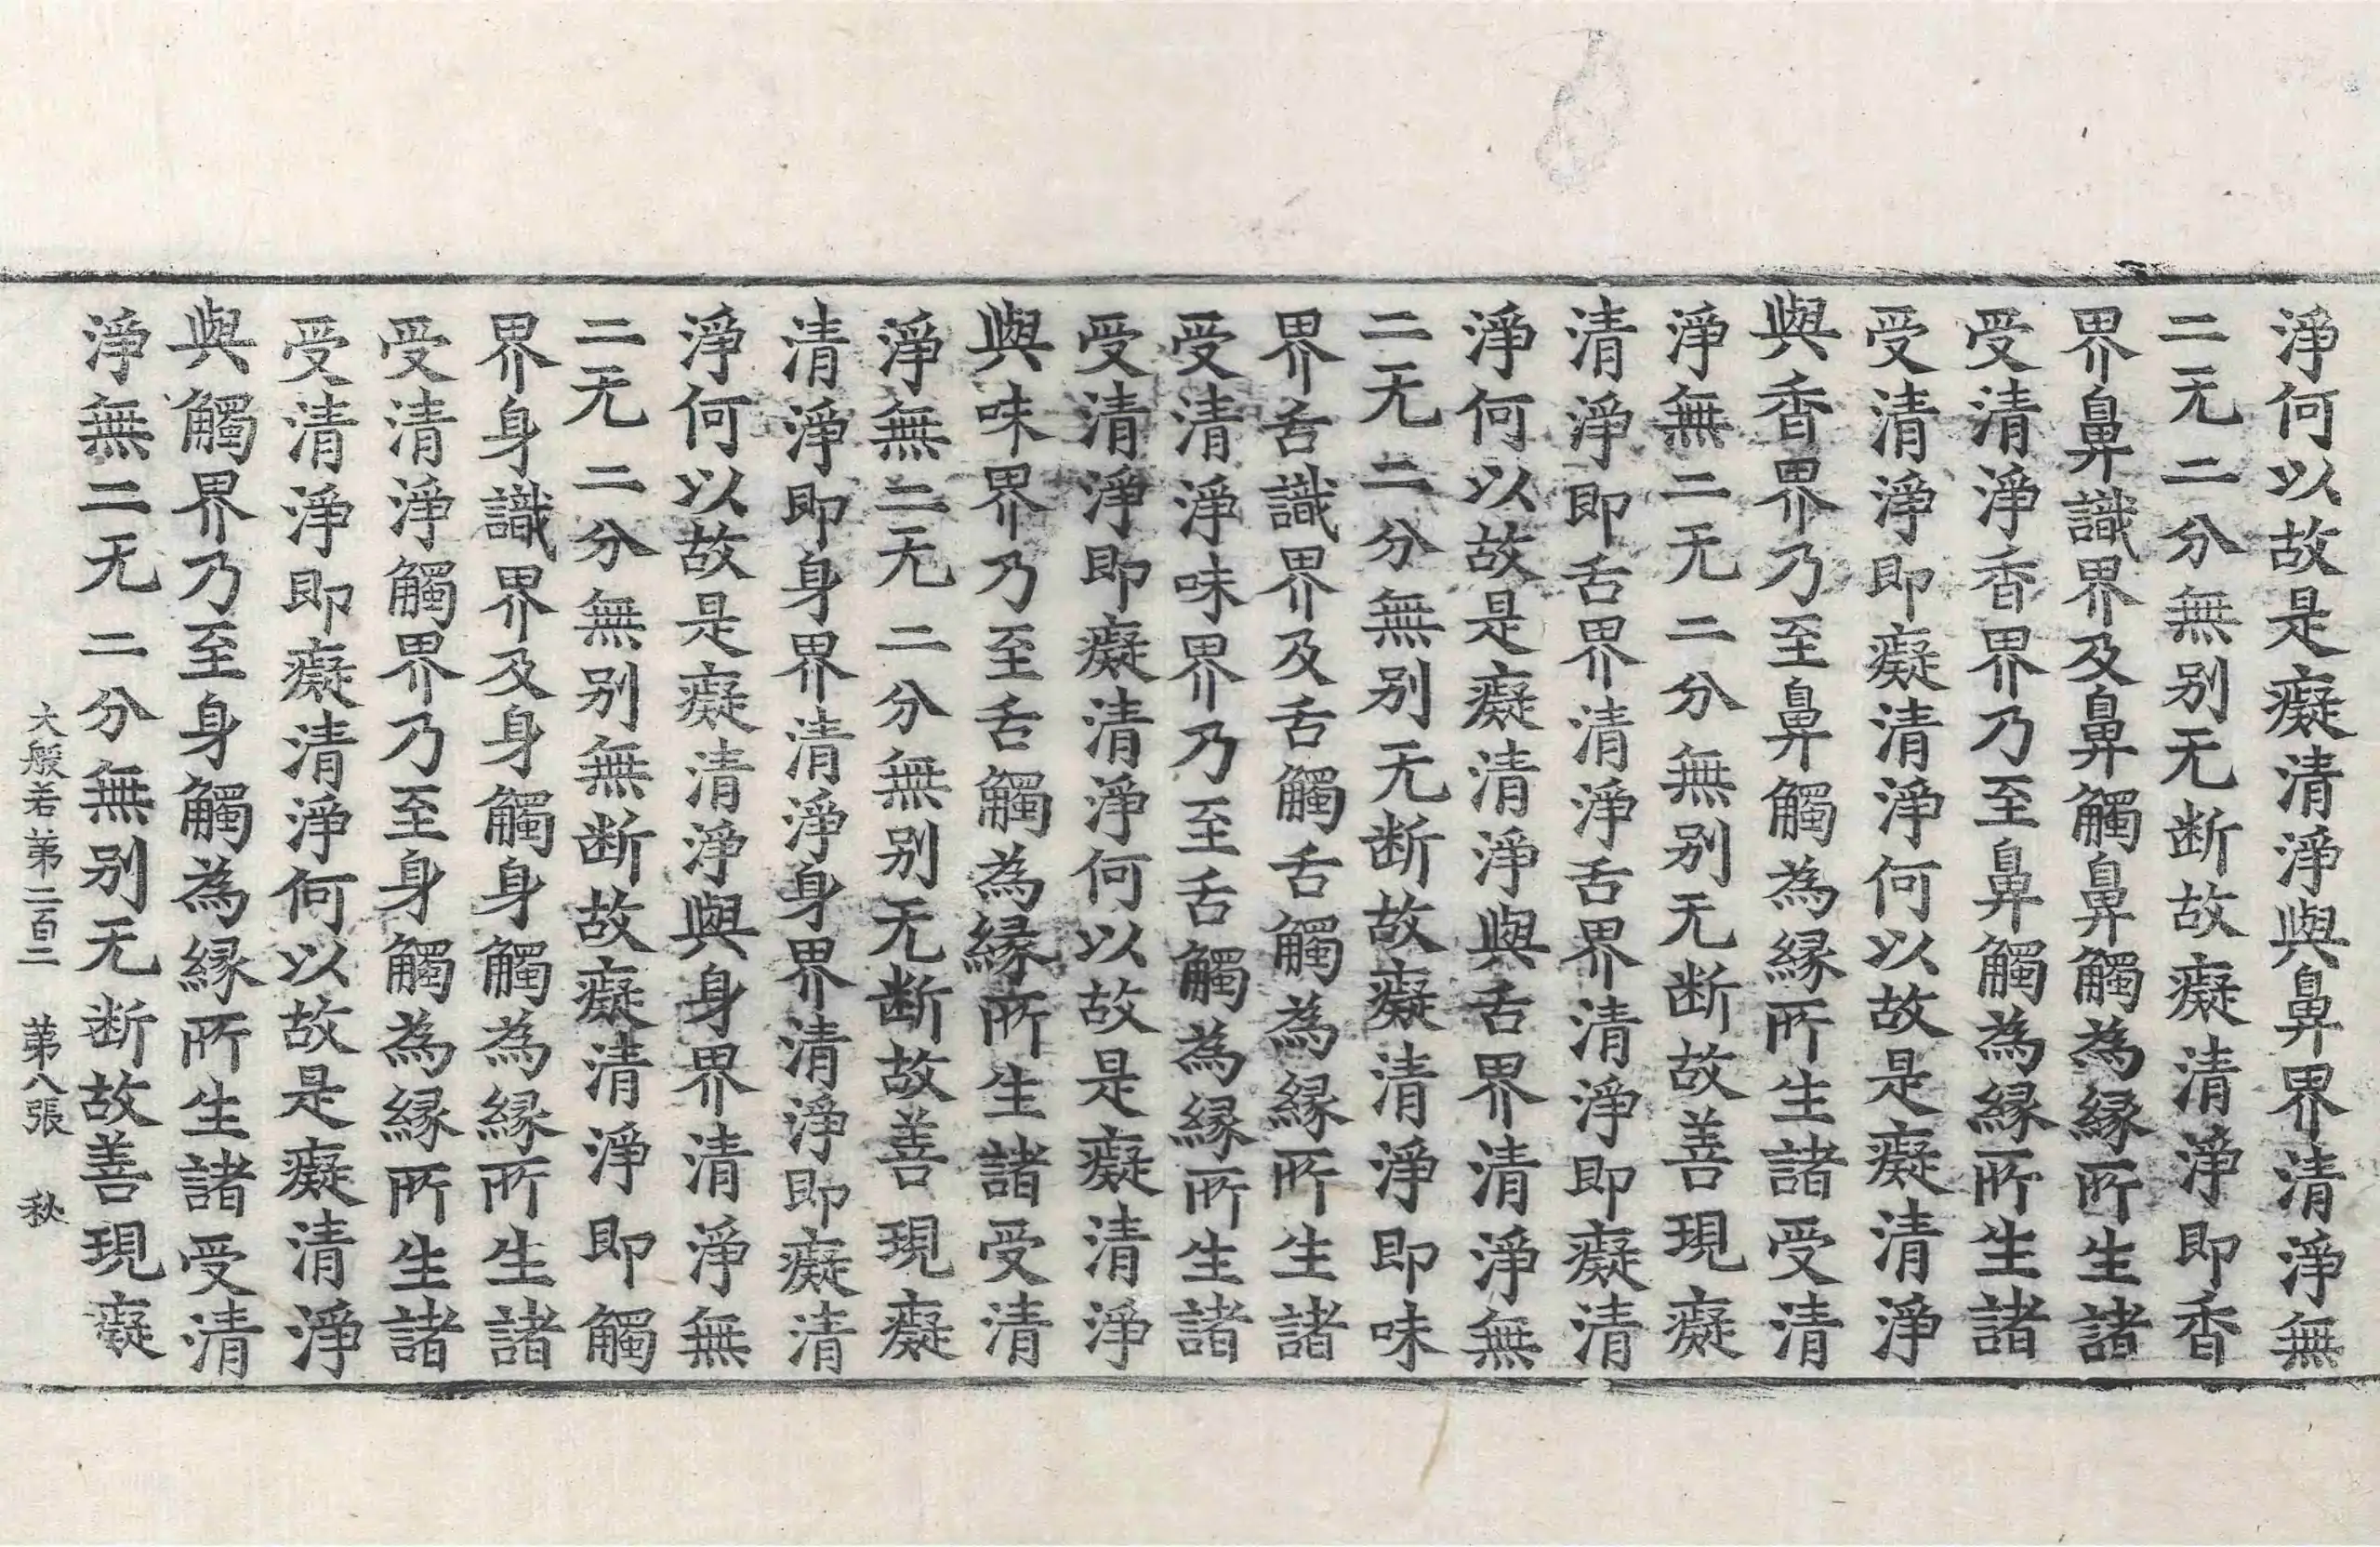 淨何以故是癡清淨與鼻界清淨無
二无二分無别无断故癡清淨即香
界鼻識界及鼻觸鼻觸為縁所生諸
受清淨香界乃至鼻觸為縁所生諸
受清淨即癡清淨何以故是癡清淨
與香界乃至鼻觸為縁所生諸受清
淨無二无二分無别无断故善現癡
清淨即舌界清淨舌界清淨即癡清
淨何以故是癡清淨與舌界清淨無
二无二分無别无断故癡清淨即味
界舌識界及舌觸舌觸為縁所生諸
受清淨味界乃至舌觸為縁所生諸
受清淨即癡清淨何以故是癡清淨
與味界乃至舌觸為縁所生諸受清
淨無二无二分無别无断故善現癡
清淨即身界清淨身界清淨即癡清
淨何以故是癡清淨與身界清淨無
二无二分無别無断故癡清淨即觸
界身識界及身觸身觸為縁所生諸
受清淨觸界乃至身觸為縁所生諸
受清淨即癡清淨何以故是癡清淨
與觸界乃至身觸為縁所生諸受清
淨無二无二分無别无断故善現癡
大般若苐二百二 苐八張 秋